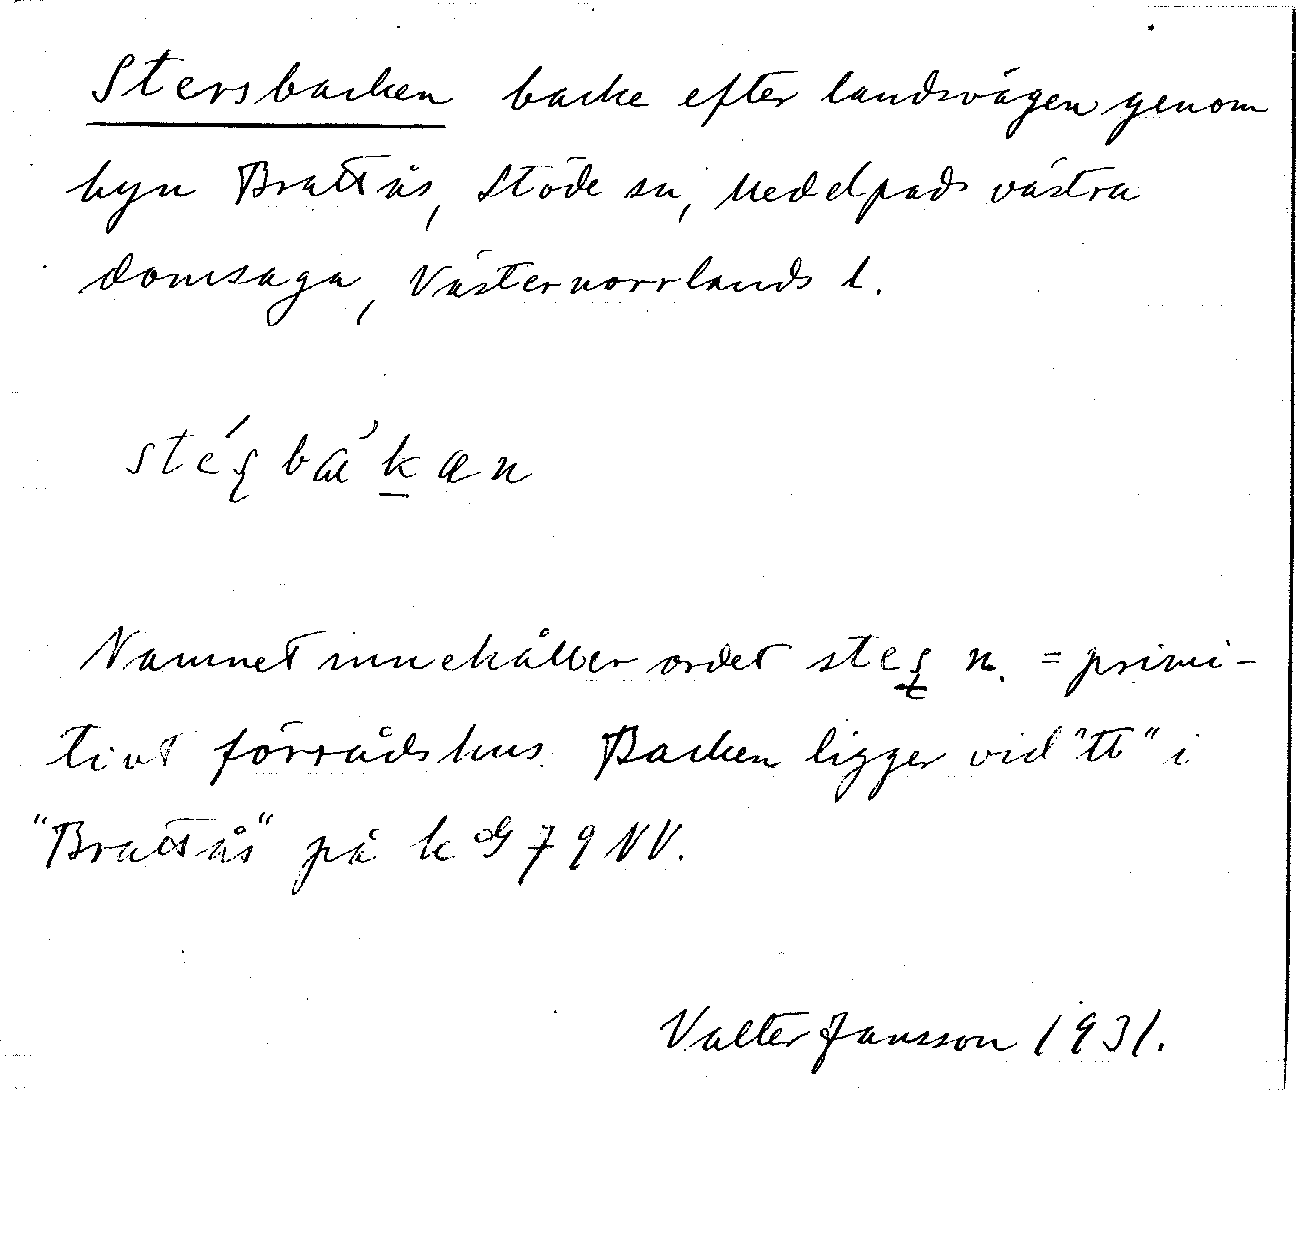 Stersbacken backe efter landsvägen genom
byn Brattås, Stöde sn, Medelpads västra
domsaga, Västernorrlands l.
Namnet innehåller ordet n. = primi-
tivt förrådshus. Backen ligger vid "tt" i
"Brattås" på k 79 NV.
Valter Jansson 1931.